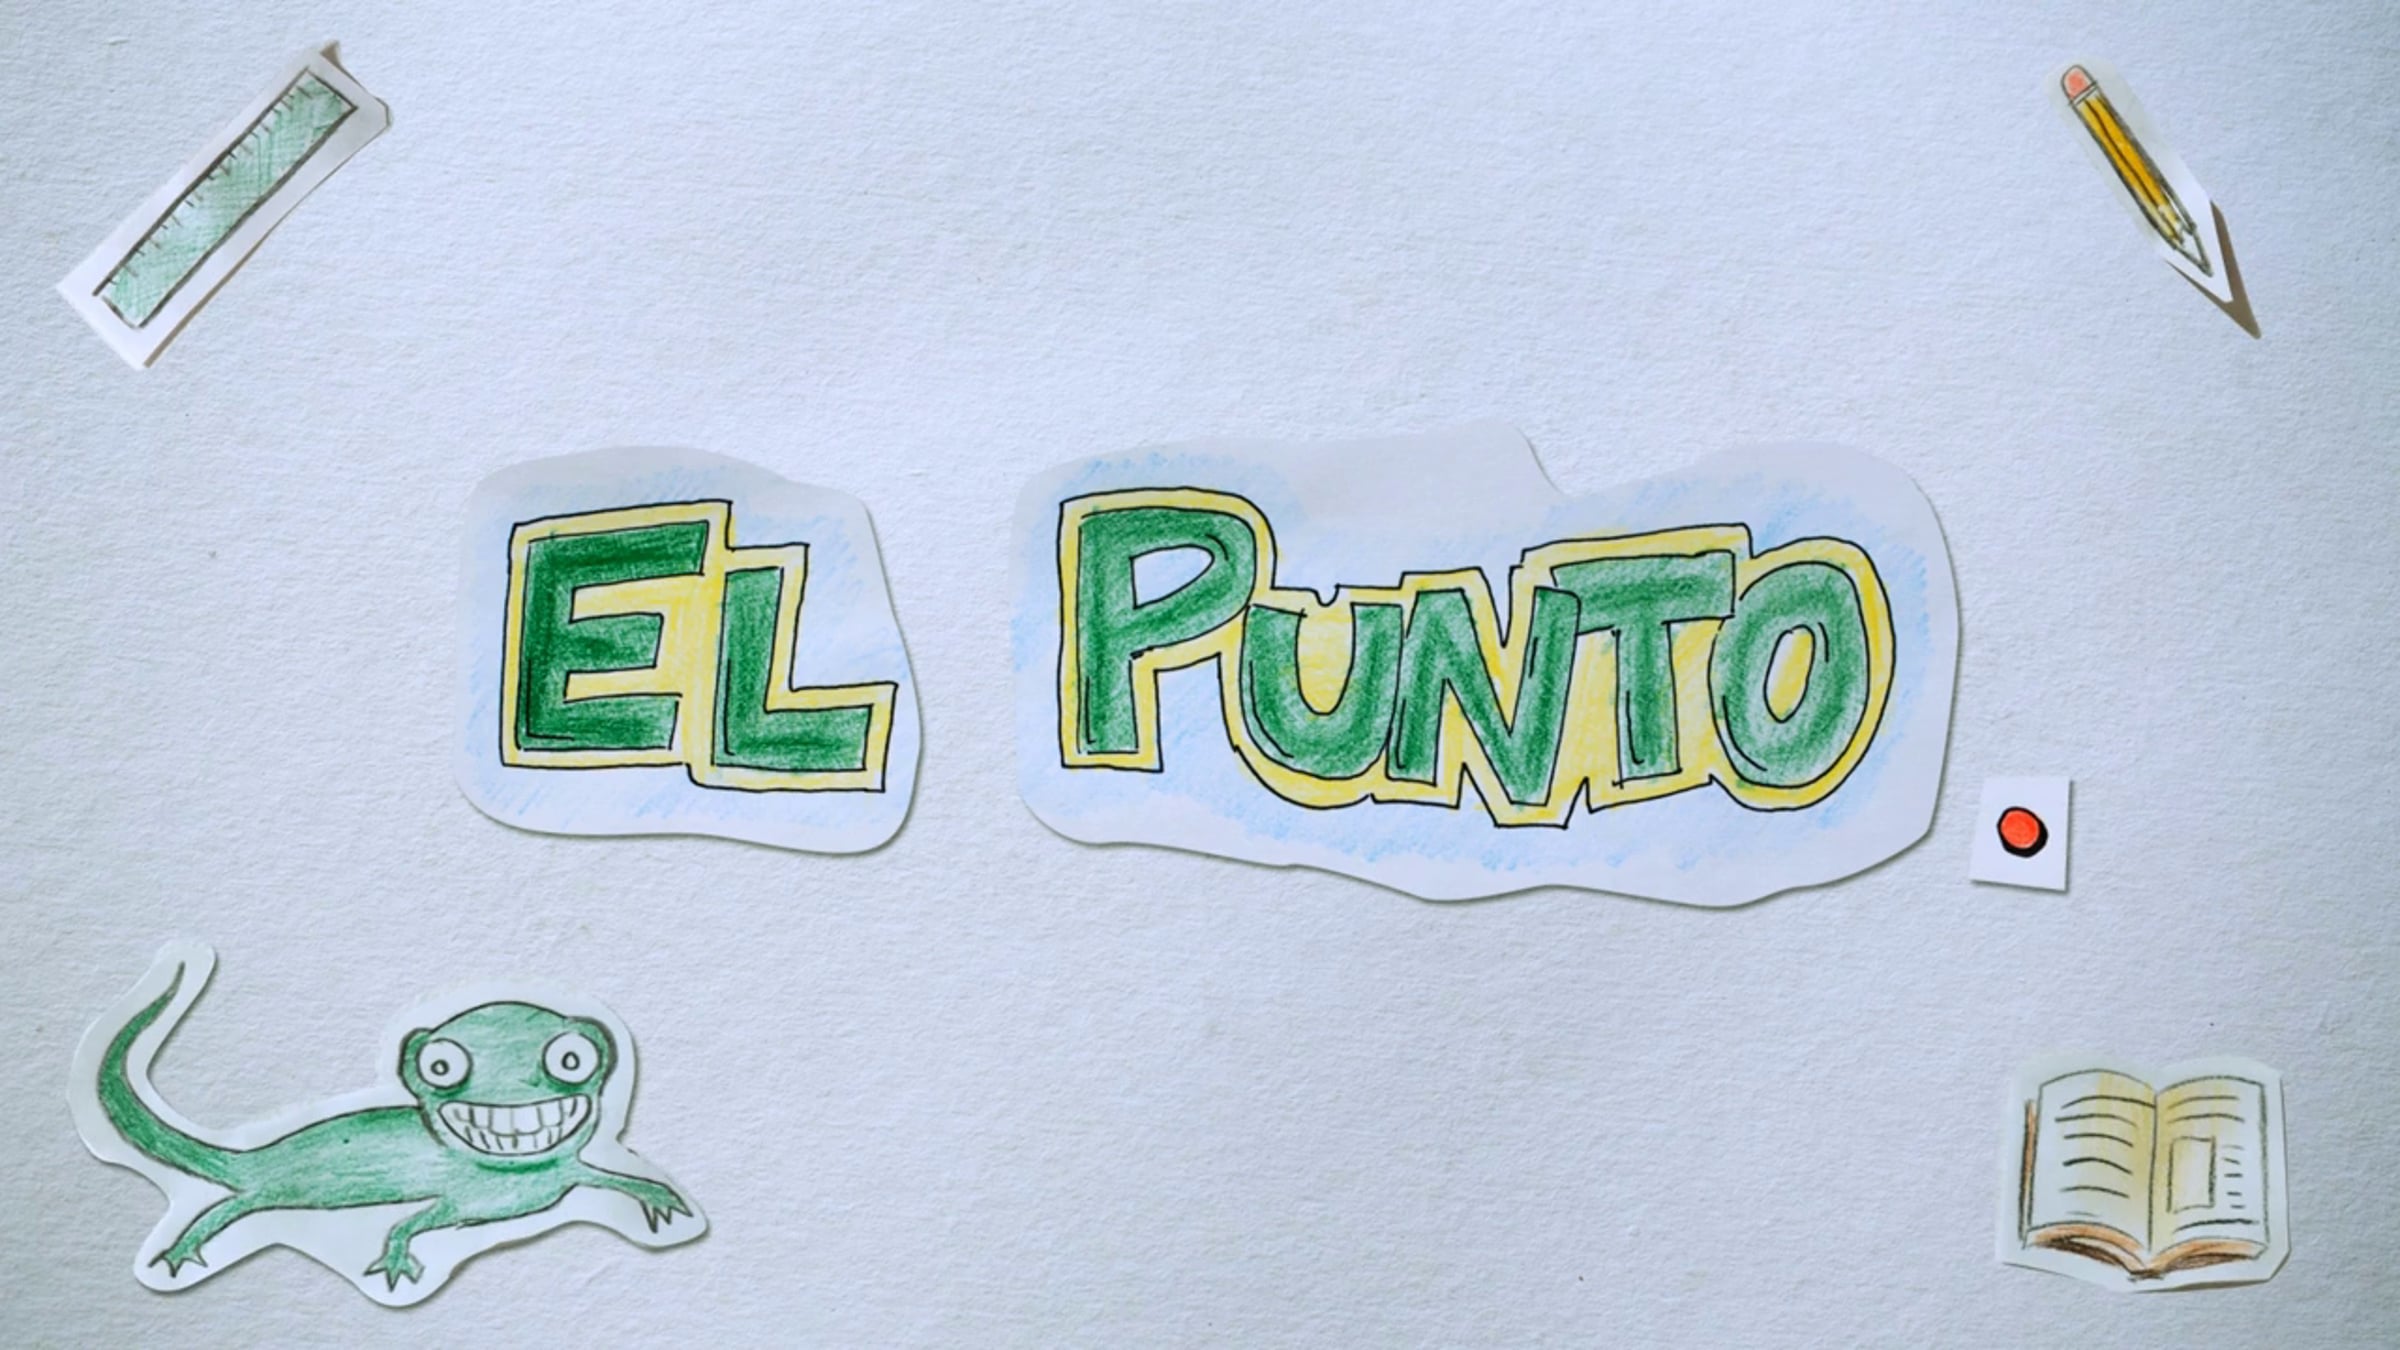 EL PUNTO.